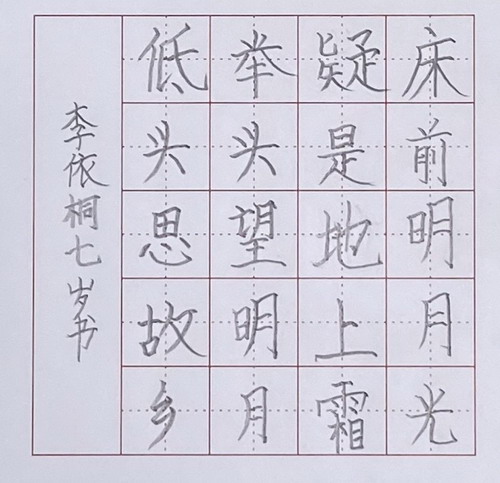 床前明月光
疑是地上霜
举头望明月
低头思故乡
李依桐七岁书